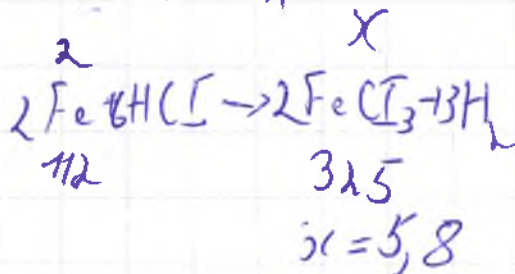 2 x
2Fe+6HCl→2FeCl₃+3H₂
112 325
x=5,8